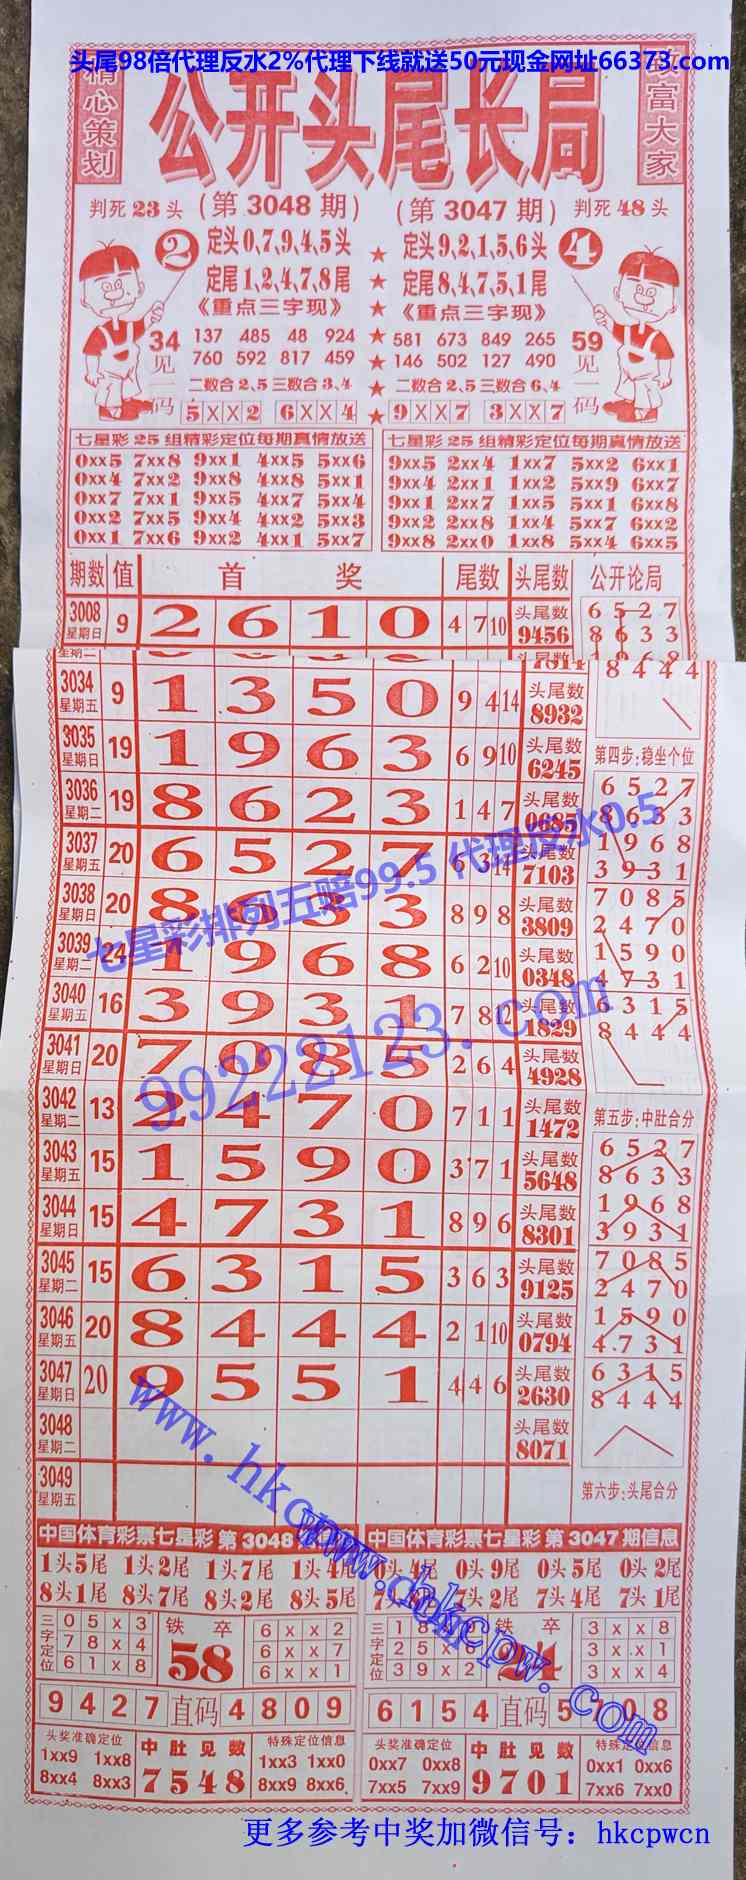 头尾98倍代理反水2%代理下线就送50元现金网址66373.com
精心策划
公开头尾长局
致富大家
判死23头 (第3048期) (第3047期) 判死48头
2 定头0,7,9,4,5头 ★ 定头9,2,1,5,6头 4
定尾1,2,4,7,8尾 ★ 定尾8,4,7,5,1尾
《重点三字现》 《重点三字现》
34见一码 137 485 48 924 ★ 581 673 849 265 59见一码
760 592 817 459 ★ 146 502 127 490
二数合2,5三数合3,4 ★ 二数合2,5三数合6,4
5XX2 6XX4 ★ 9XX7 3XX7
七星彩25组精彩定位每期真情放送 七星彩25组精彩定位每期真情放送
0xx5 7xx8 9xx1 4xx5 5xx6 9xx5 2xx4 1xx7 5xx2 6xx1
0xx4 7xx2 9xx8 4xx8 5xx1 9xx4 2xx1 1xx2 5xx9 6xx7
0xx7 7xx1 9xx5 4xx7 5xx4 9xx1 2xx7 1xx5 5xx1 6xx8
0xx2 7xx5 9xx4 4xx2 5xx3 9xx2 2xx8 1xx4 5xx7 6xx2
0xx1 7xx6 9xx2 4xx1 5xx7 9xx8 2xx0 1xx8 5xx4 6xx5
期数 值 首奖 尾数 头尾数 公开论局
3008 星期日 9 2 6 1 0 4 7 10 头尾数 9456
6 5 2 7
8 6 3 3
3034 星期五 9 1 3 5 0 9 4 14 头尾数 8932
8 4 4 4
3035 星期日 19 1 9 6 3 6 9 10 头尾数 6245
第四步:稳坐个位
3036 星期二 19 8 6 2 3 1 4 7 头尾数 0685
6 5 2 7
8 6 3 3
3037 星期五 20 6 5 2 7 6 3 14 头尾数 7103
1 9 6 8
3 9 3 1
3038 星期日 20 8 6 3 3 8 9 8 头尾数 3809
7 0 8 5
2 4 7 0
七星彩排列五赔99.5 代理反水0.5
3039 星期二 24 1 9 6 8 6 2 10 头尾数 0348
1 5 9 0
4 7 3 1
3040 星期五 16 3 9 3 1 7 8 12 头尾数 1829
6 3 1 5
8 4 4 4
99222123.com
3041 星期日 20 7 0 8 5 2 6 4 头尾数 4928
3042 星期二 13 2 4 7 0 7 1 1 头尾数 1472
第五步:中肚合分
3043 星期五 15 1 5 9 0 3 7 1 头尾数 5648
6 5 2 7
8 6 3 3
3044 星期日 15 4 7 3 1 8 9 6 头尾数 8301
1 9 6 8
3 9 3 1
3045 星期二 15 6 3 1 5 3 6 3 头尾数 9125
7 0 8 5
2 4 7 0
3046 星期五 20 8 4 4 4 2 1 10 头尾数 0794
1 5 9 0
4 7 3 1
3047 星期日 20 9 5 5 1 4 4 6 头尾数 2630
6 3 1 5
8 4 4 4
3048 星期二 头尾数 8071
3049 星期五
第六步:头尾合分
www.hkcpw
www.dhkcpw.com
中国体育彩票七星彩 第3048 中国体育彩票七星彩 第3047期信息
1头5尾 1头2尾 1头7尾 1头4尾 0头4尾 0头9尾 0头5尾 0头2尾
8头1尾 8头7尾 8头2尾 8头5尾 7头2尾 7头4尾 7头1尾
三字定位 铁卒 58 三字定位 铁卒 24
0 5 x 3 6 x x 2 3 x x 8
7 8 x 4 6 x x 7 2 5 x 3 x x 1
6 1 x 8 6 x x 1 3 9 x 2 3 x x 4
9 4 2 7 直码 4 8 0 9 6 1 5 4 直码 5 1 0 8
头奖准确定位 中肚见数 特殊定位信息 头奖准确定位 中肚见数 特殊定位信息
1xx9 1xx8 7548 1xx3 1xx0 0xx7 0xx8 9701 0xx1 0xx6
8xx4 8xx3 8xx9 8xx6 7xx5 7xx9 7xx6 7xx0
更多参考中奖加微信号：hkcpwcn